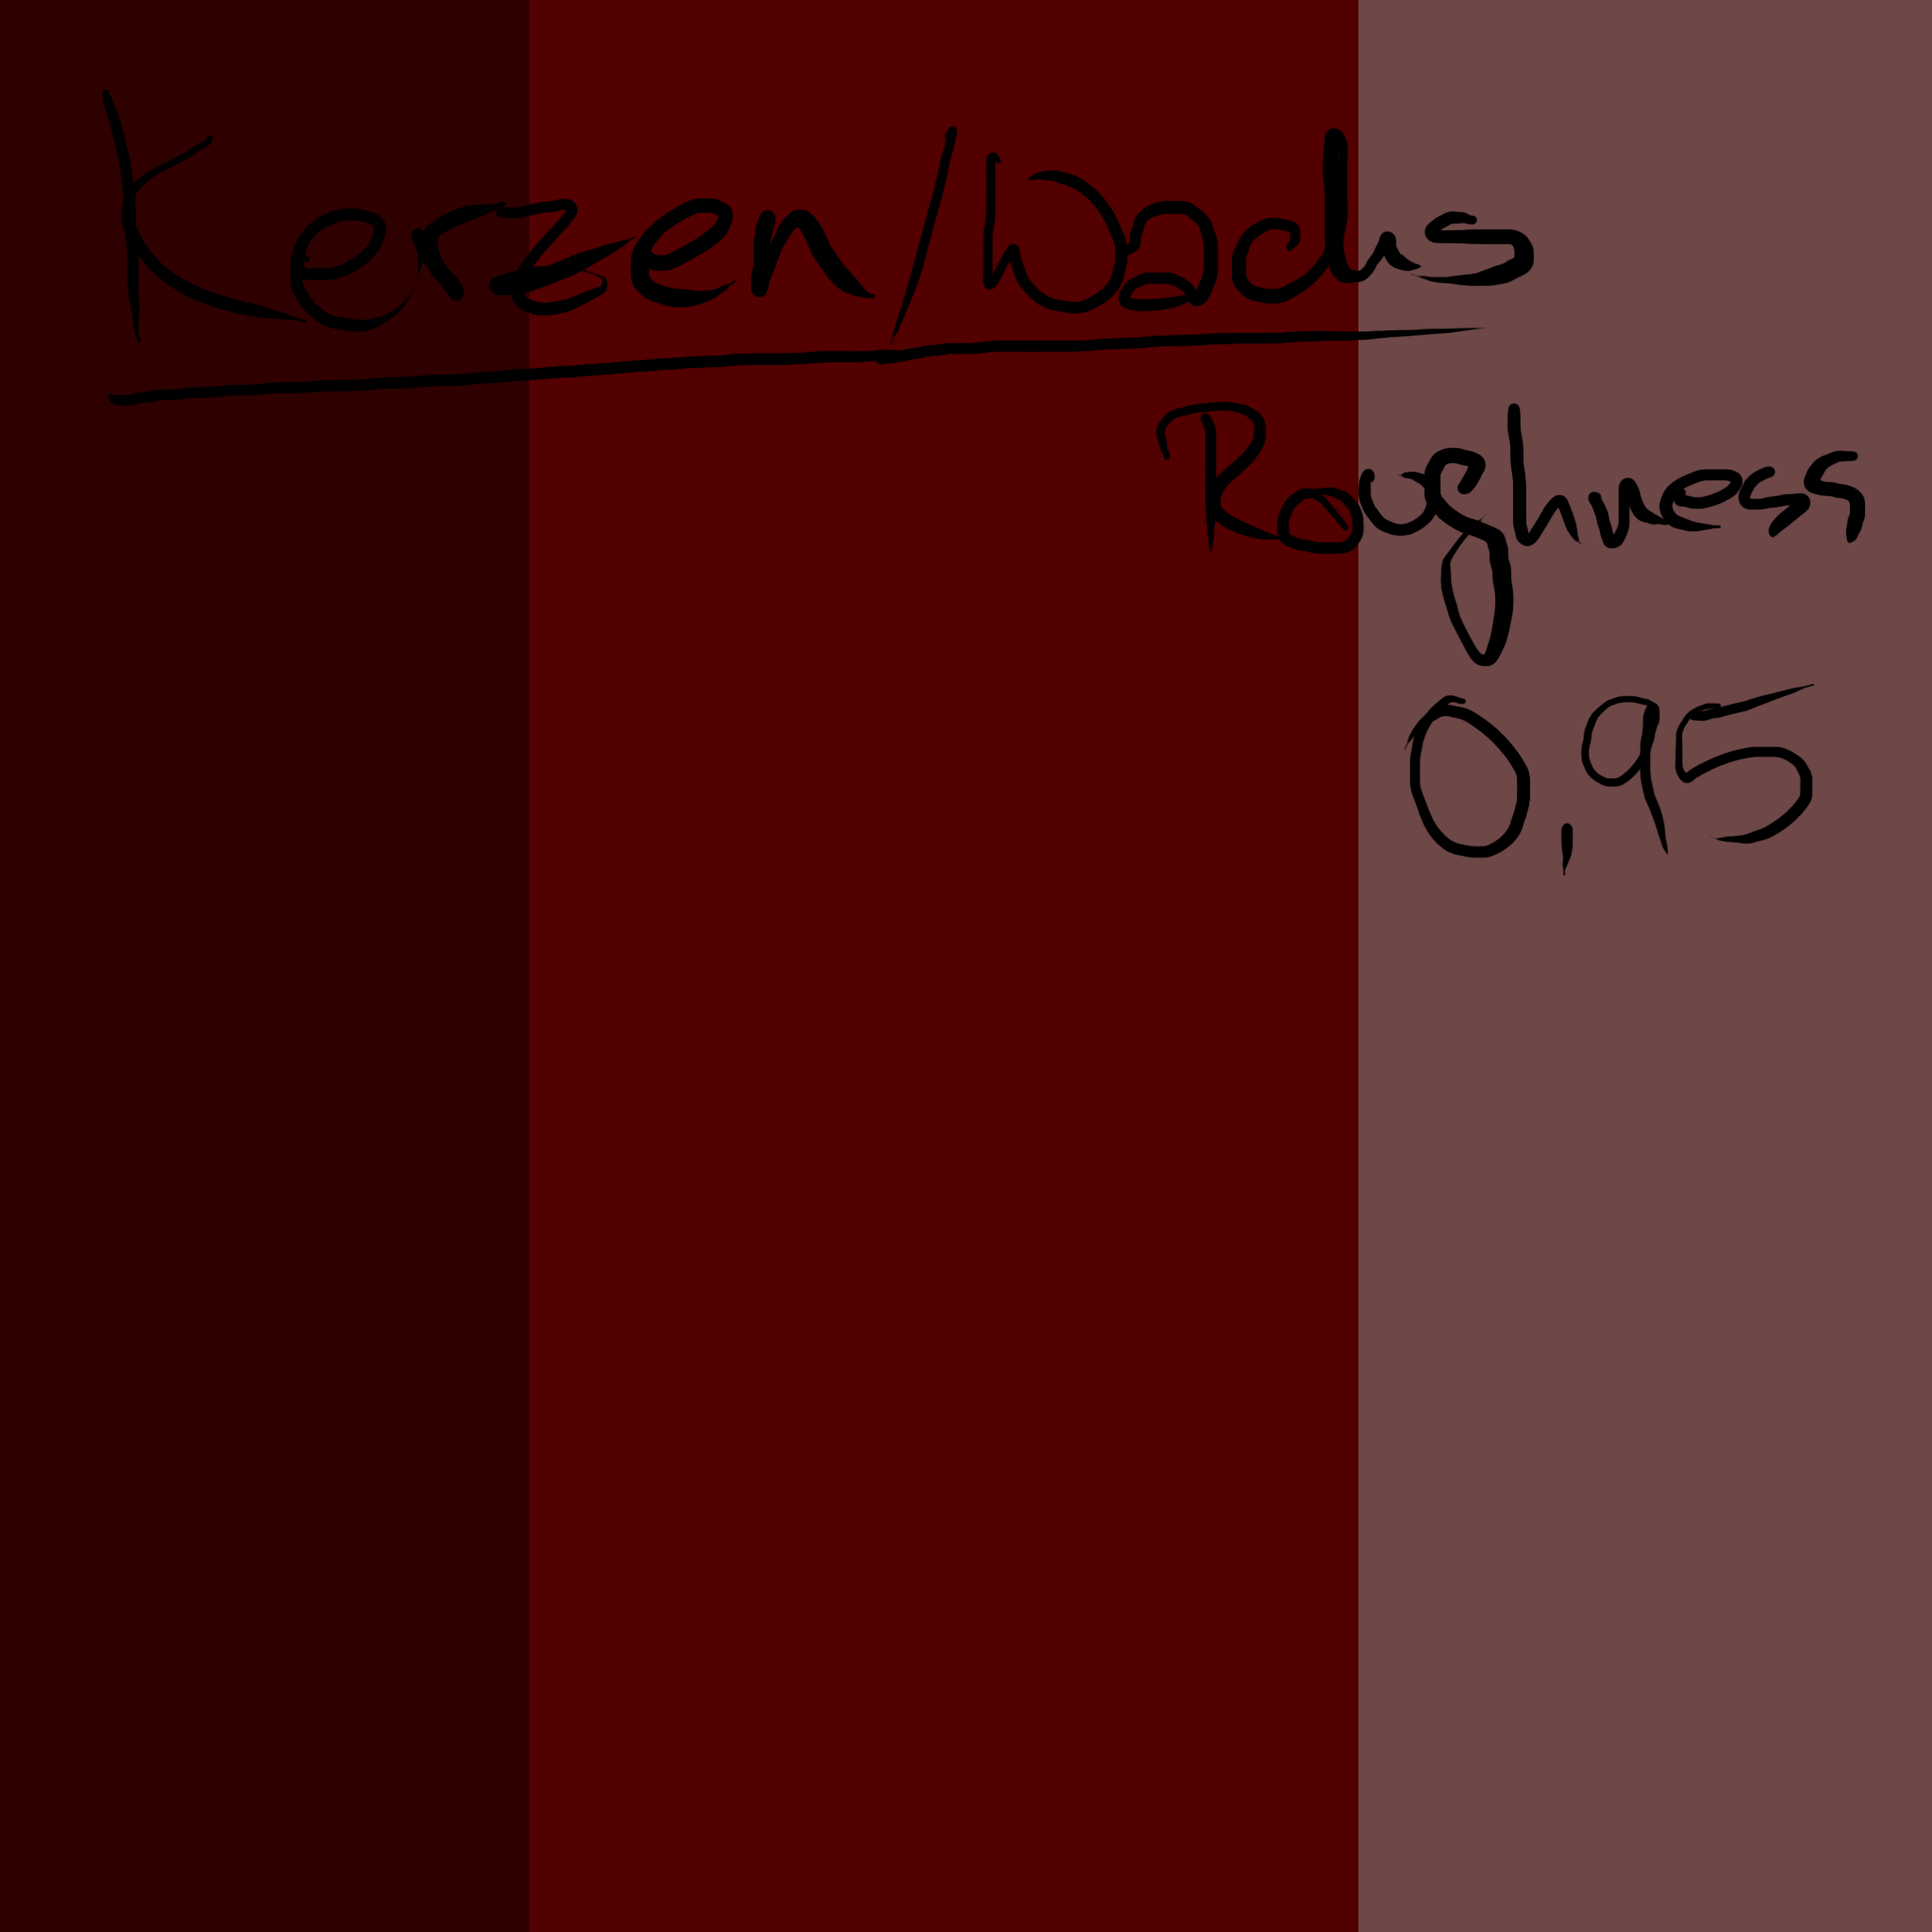 Kerzen/Wachs
Roughness
0,95